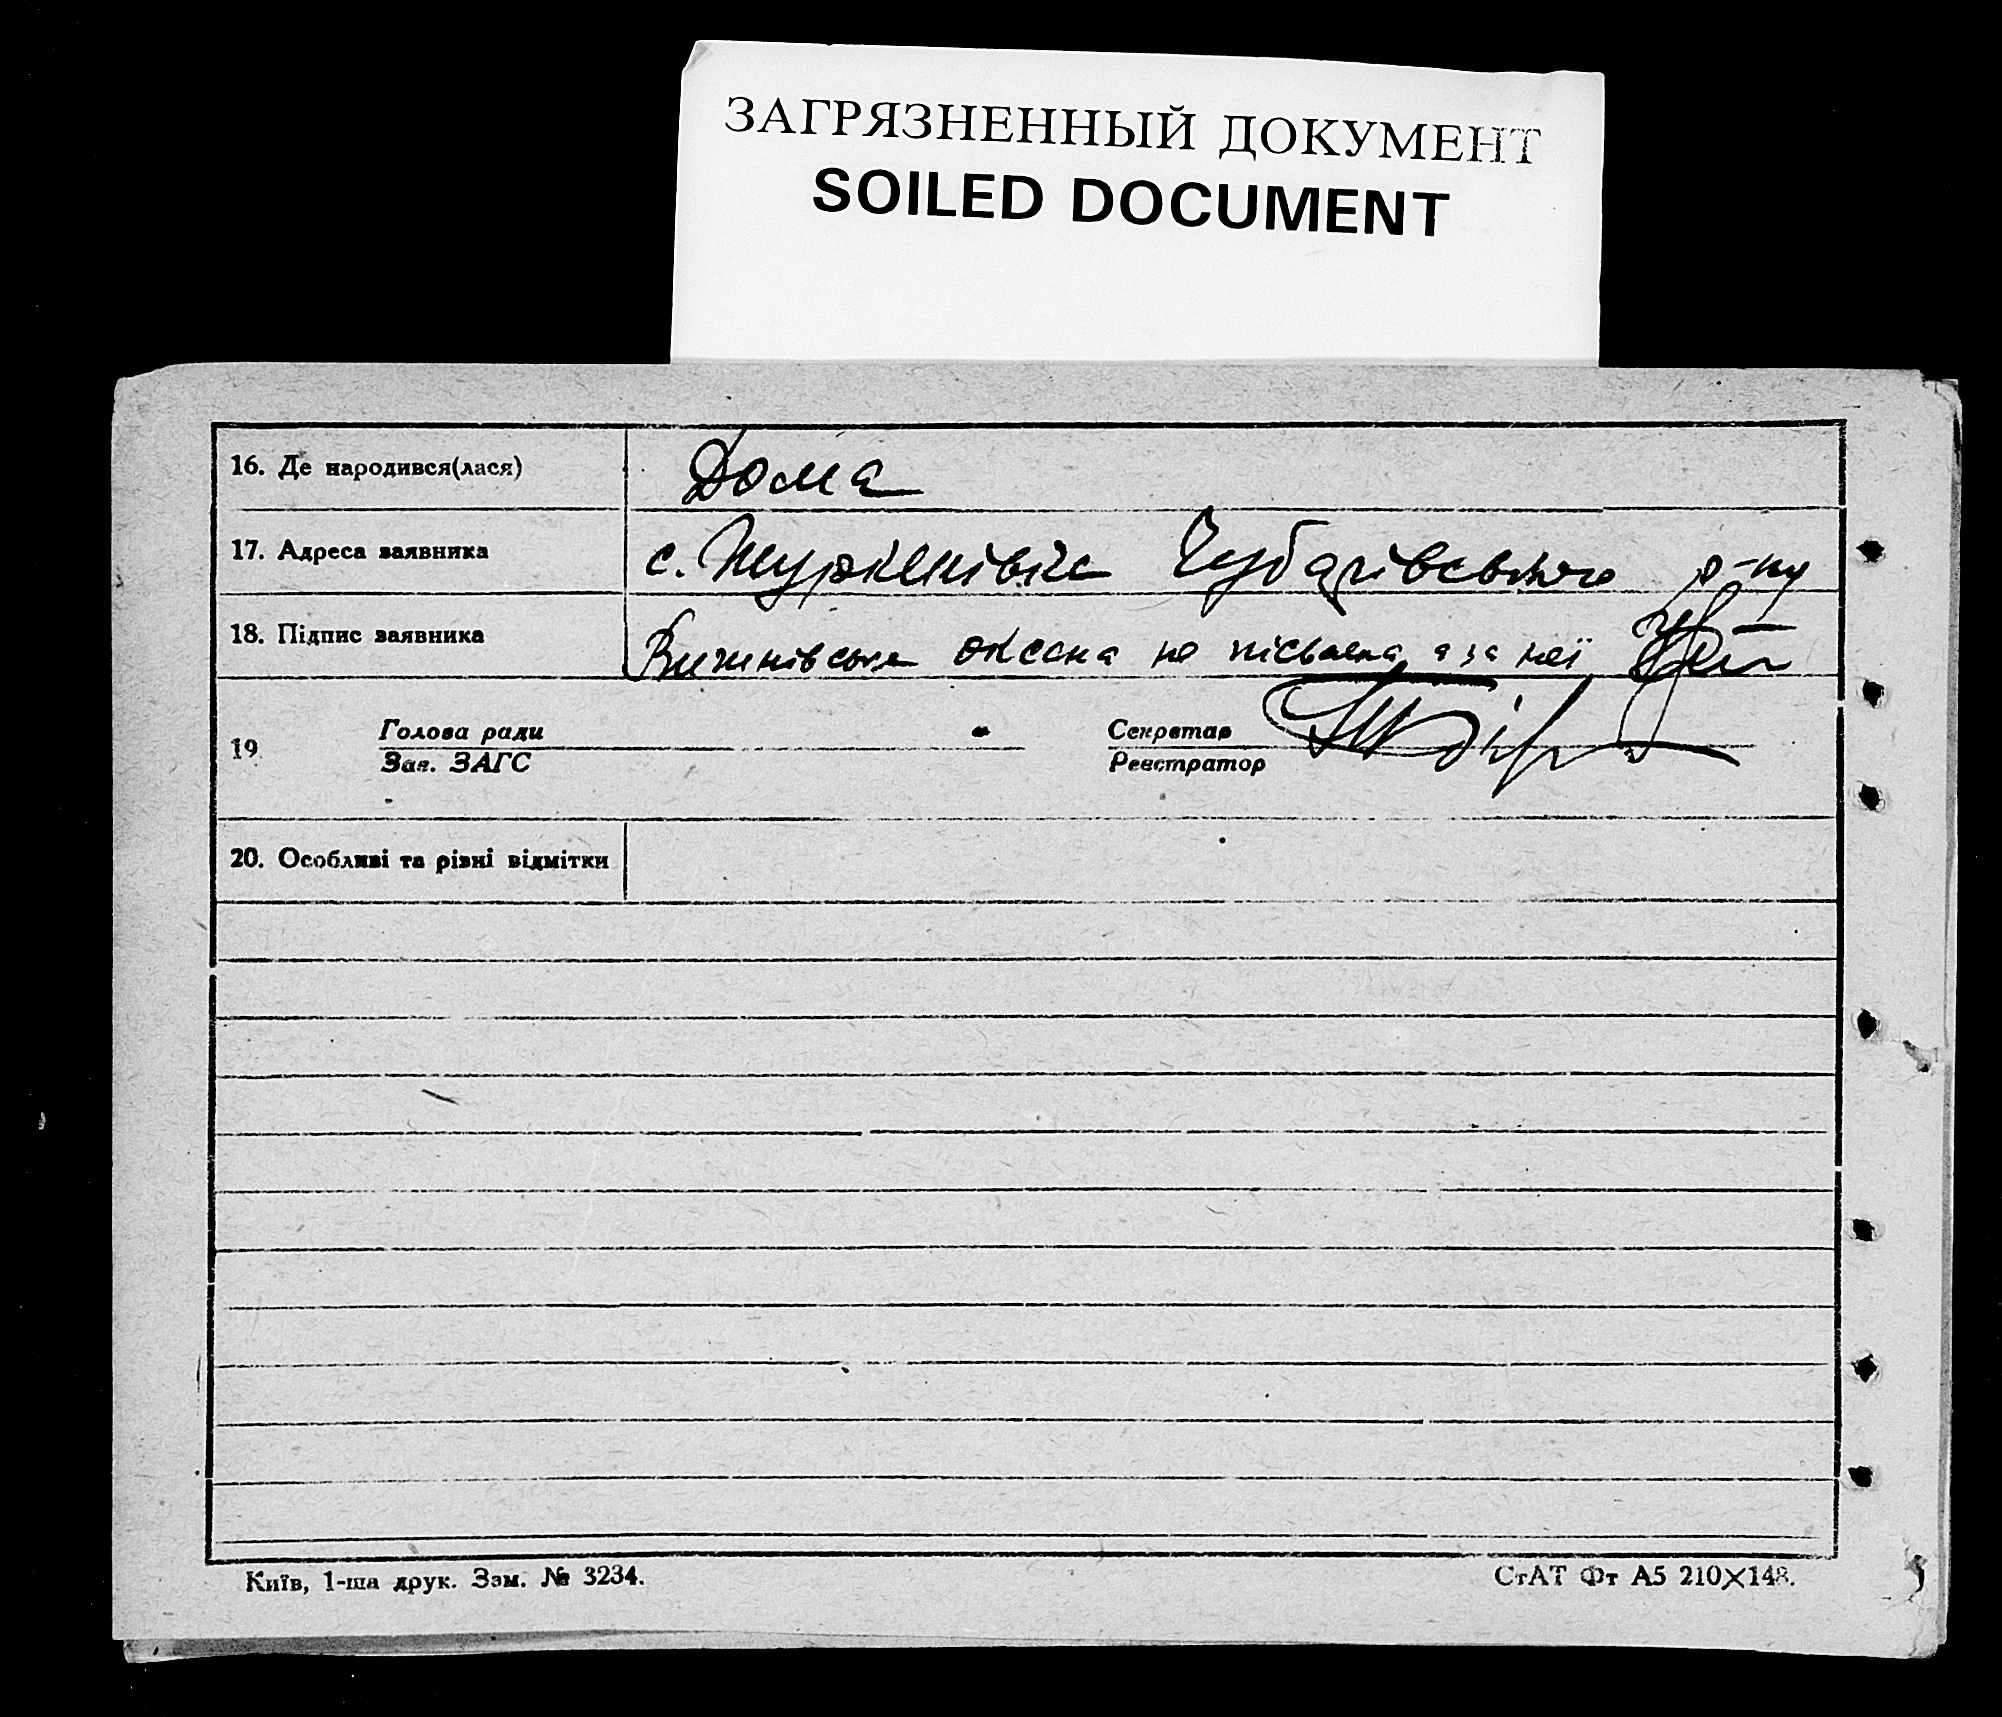 ЗАГРЯЗНЕННЫЙ ДОКУМЕНТ
SOILED DOCUMENT
16. Де народився(лася) Дома
17. Адреса заявника с. Чубарівського р-ну
18. Підпис заявника Оксена не письмена а за неї
19 Голова ради Секретар
Зав. ЗАГС Реєстратор
20. Особливі та різні відмітки
Київ, 1-ша друк. Зам. № 3234.
СтАТ Фт А5 210×148.